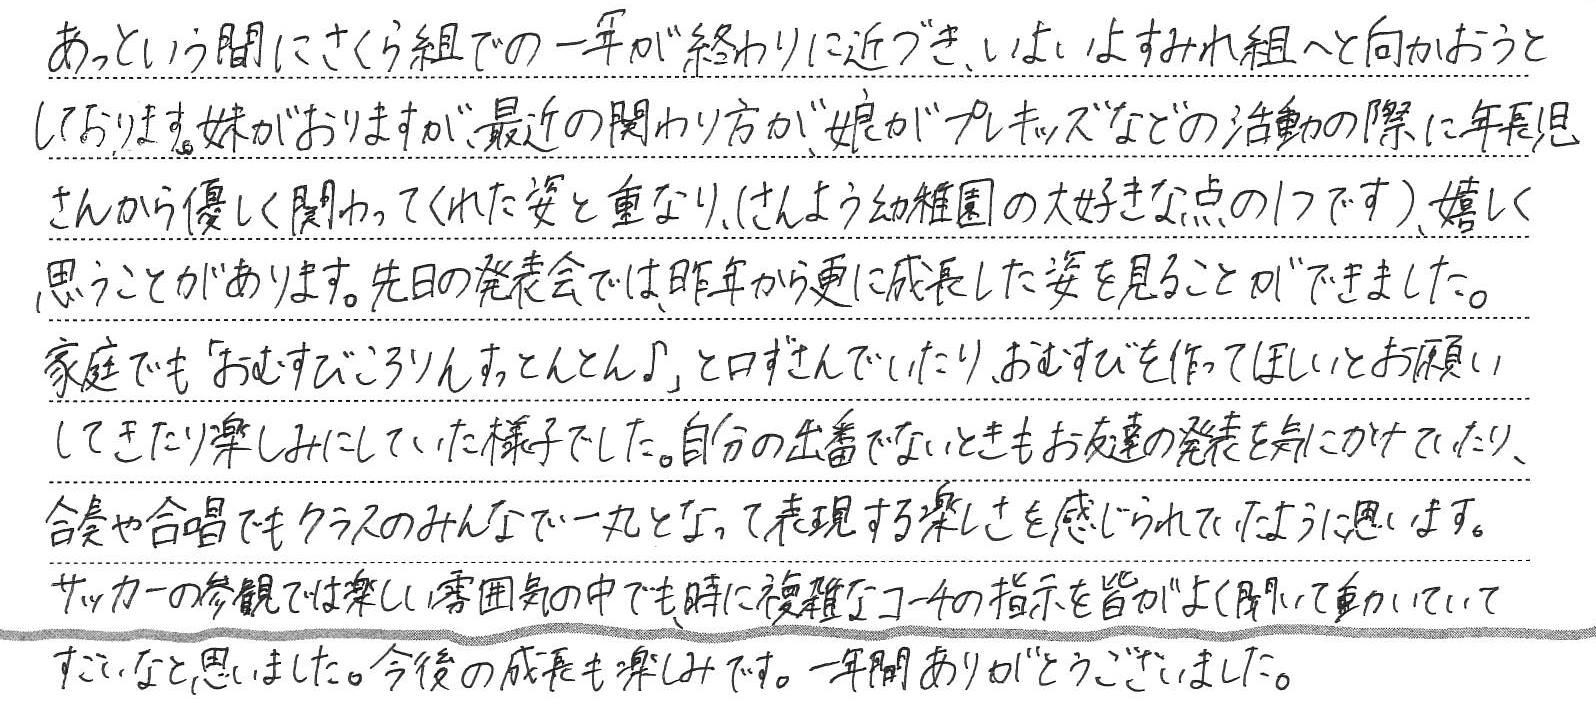 あっという間にさくら組での一年が終わりに近づき、いよいよすみれ組へと向かおうと
しております。妹がおりますが、最近の関わり方が、娘がプレキッズなどの活動の際に年長児
さんから優しく関わってくれた姿と重なり、(さんよう幼稚園の大好きな点の1つです)、嬉しく
思うことがあります。先日の発表会では、昨年から更に成長した姿を見ることができました。
家庭でも「おむすびころりんすっとんとん♪」と口ずさんでいたり、おむすびを作ってほしいとお願い
してきたり楽しみにしていた様子でした。自分の出番でないときもお友達の発表を気にかけていたり、
合奏や合唱でもクラスのみんなで一丸となって表現する楽しさを感じられていたように思います。
サッカーの参観では楽しい雰囲気の中でも、時に複雑なコーチの指示を皆がよく聞いて動いていて
すごいなと思いました。今後の成長も楽しみです。一年間ありがとうございました。